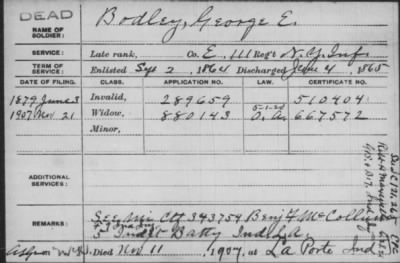 DEAD
NAME OF SOLDIER: Bodley, George E.
SERVICE: Late rank, Co. E, 111 Reg't N.Y. Inf
TERM OF SERVICE: Enlisted Sep 2, 1864 Discharged June 4, 1865
DATE OF FILING. CLASS. APPLICATION NO. LAW. CERTIFICATE NO.
1879 June 3 Invalid, 289659 510404
1907 Nov. 21 Widow, 880143 667572
Minor,
ADDITIONAL SERVICES:
REMARKS: See Mi Ctf 343754 Benj F McCollum
5 Ind Batty Ind L.A.
Died Nov 11, 1907, at La Porte Ind.